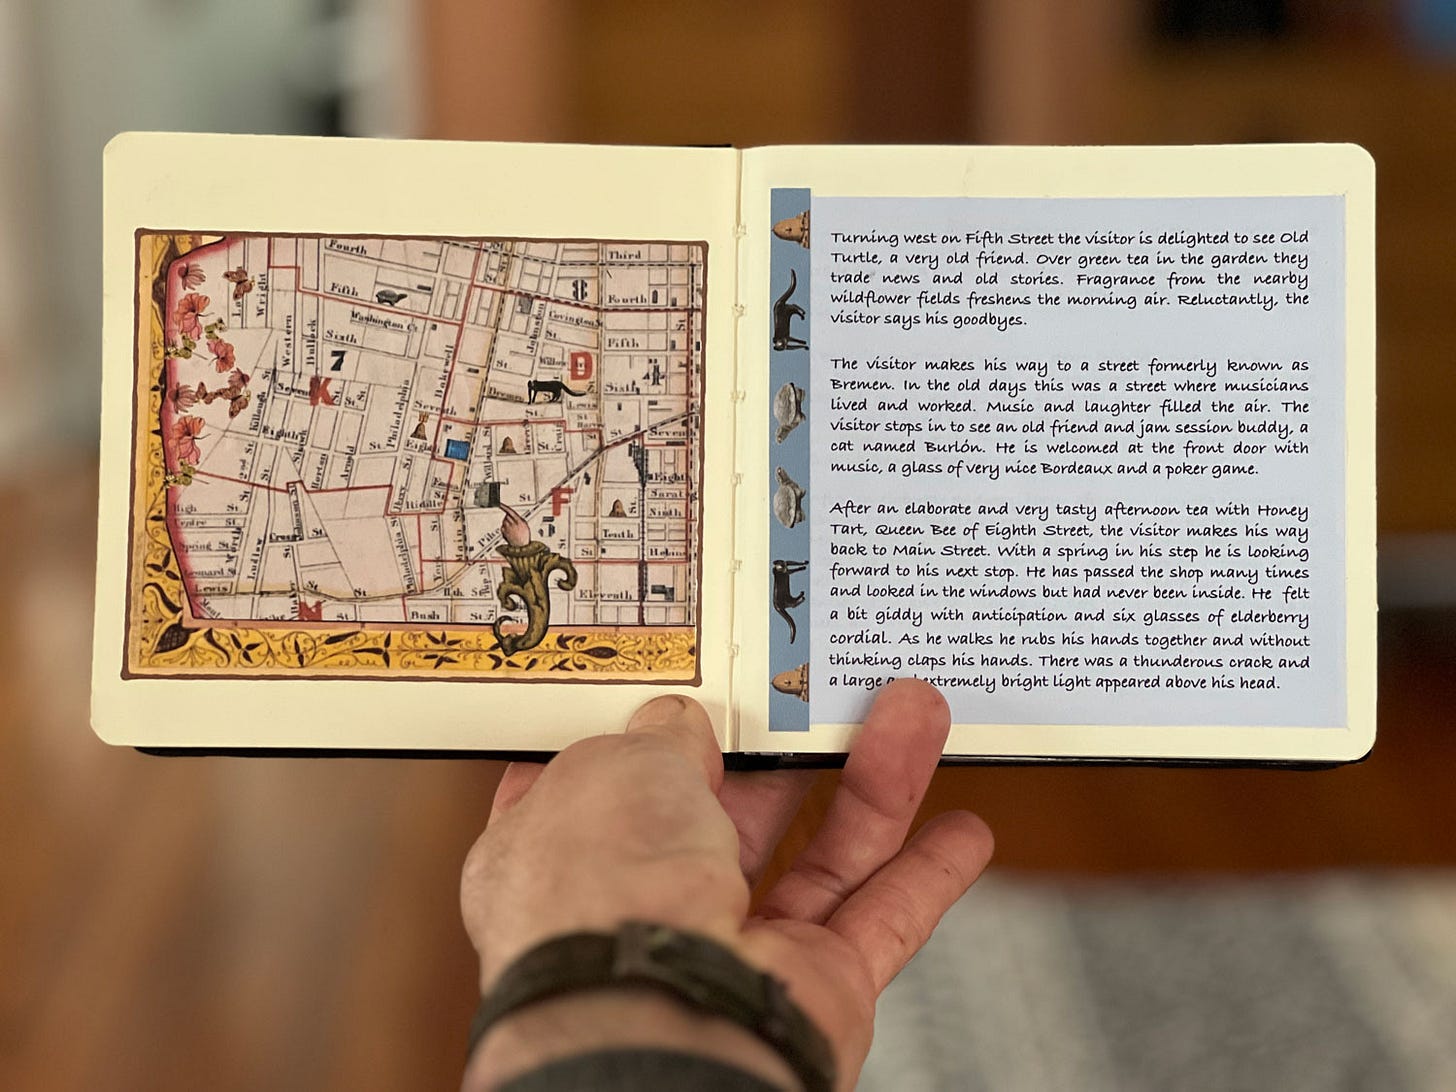 Fourth
Third
Fifth
Fourth
Wright
Washington Ct
Covington
Johnston
Western
Bullock
Sixth
Fifth
7
D
Bakewell
Bremen
Sixth
K
St.
St.
Lewis
Philadelphia
Seventh
Killough St.
Eighth
St.
Eight
St.
Seventh
2nd St.
Horton
Arnold
St.
Eight
High St.
Riddle
F
Sarat
Ninth
Centre St.
Cross
Spring St.
North
Ludlow
St.
Philadelphia
York
Main St.
Pike
Tenth
Leonard St.
Helen
Lewis
St.
11th St.
Eleventh
St.
Bush
St.
Turning west on Fifth Street the visitor is delighted to see Old
Turtle, a very old friend. Over green tea in the garden they
trade news and old stories. Fragrance from the nearby
wildflower fields freshens the morning air. Reluctantly, the
visitor says his goodbyes.
The visitor makes his way to a street formerly known as
Bremen. In the old days this was a street where musicians
lived and worked. Music and laughter filled the air. The
visitor stops in to see an old friend and jam session buddy, a
cat named Burlón. He is welcomed at the front door with
music, a glass of very nice Bordeaux and a poker game.
After an elaborate and very tasty afternoon tea with Honey
Tart, Queen Bee of Eighth Street, the visitor makes his way
back to Main Street. With a spring in his step he is looking
forward to his next stop. He has passed the shop many times
and looked in the windows but had never been inside. He felt
a bit giddy with anticipation and six glasses of elderberry
cordial. As he walks he rubs his hands together and without
thinking claps his hands. There was a thunderous crack and
a large extremely bright light appeared above his head.